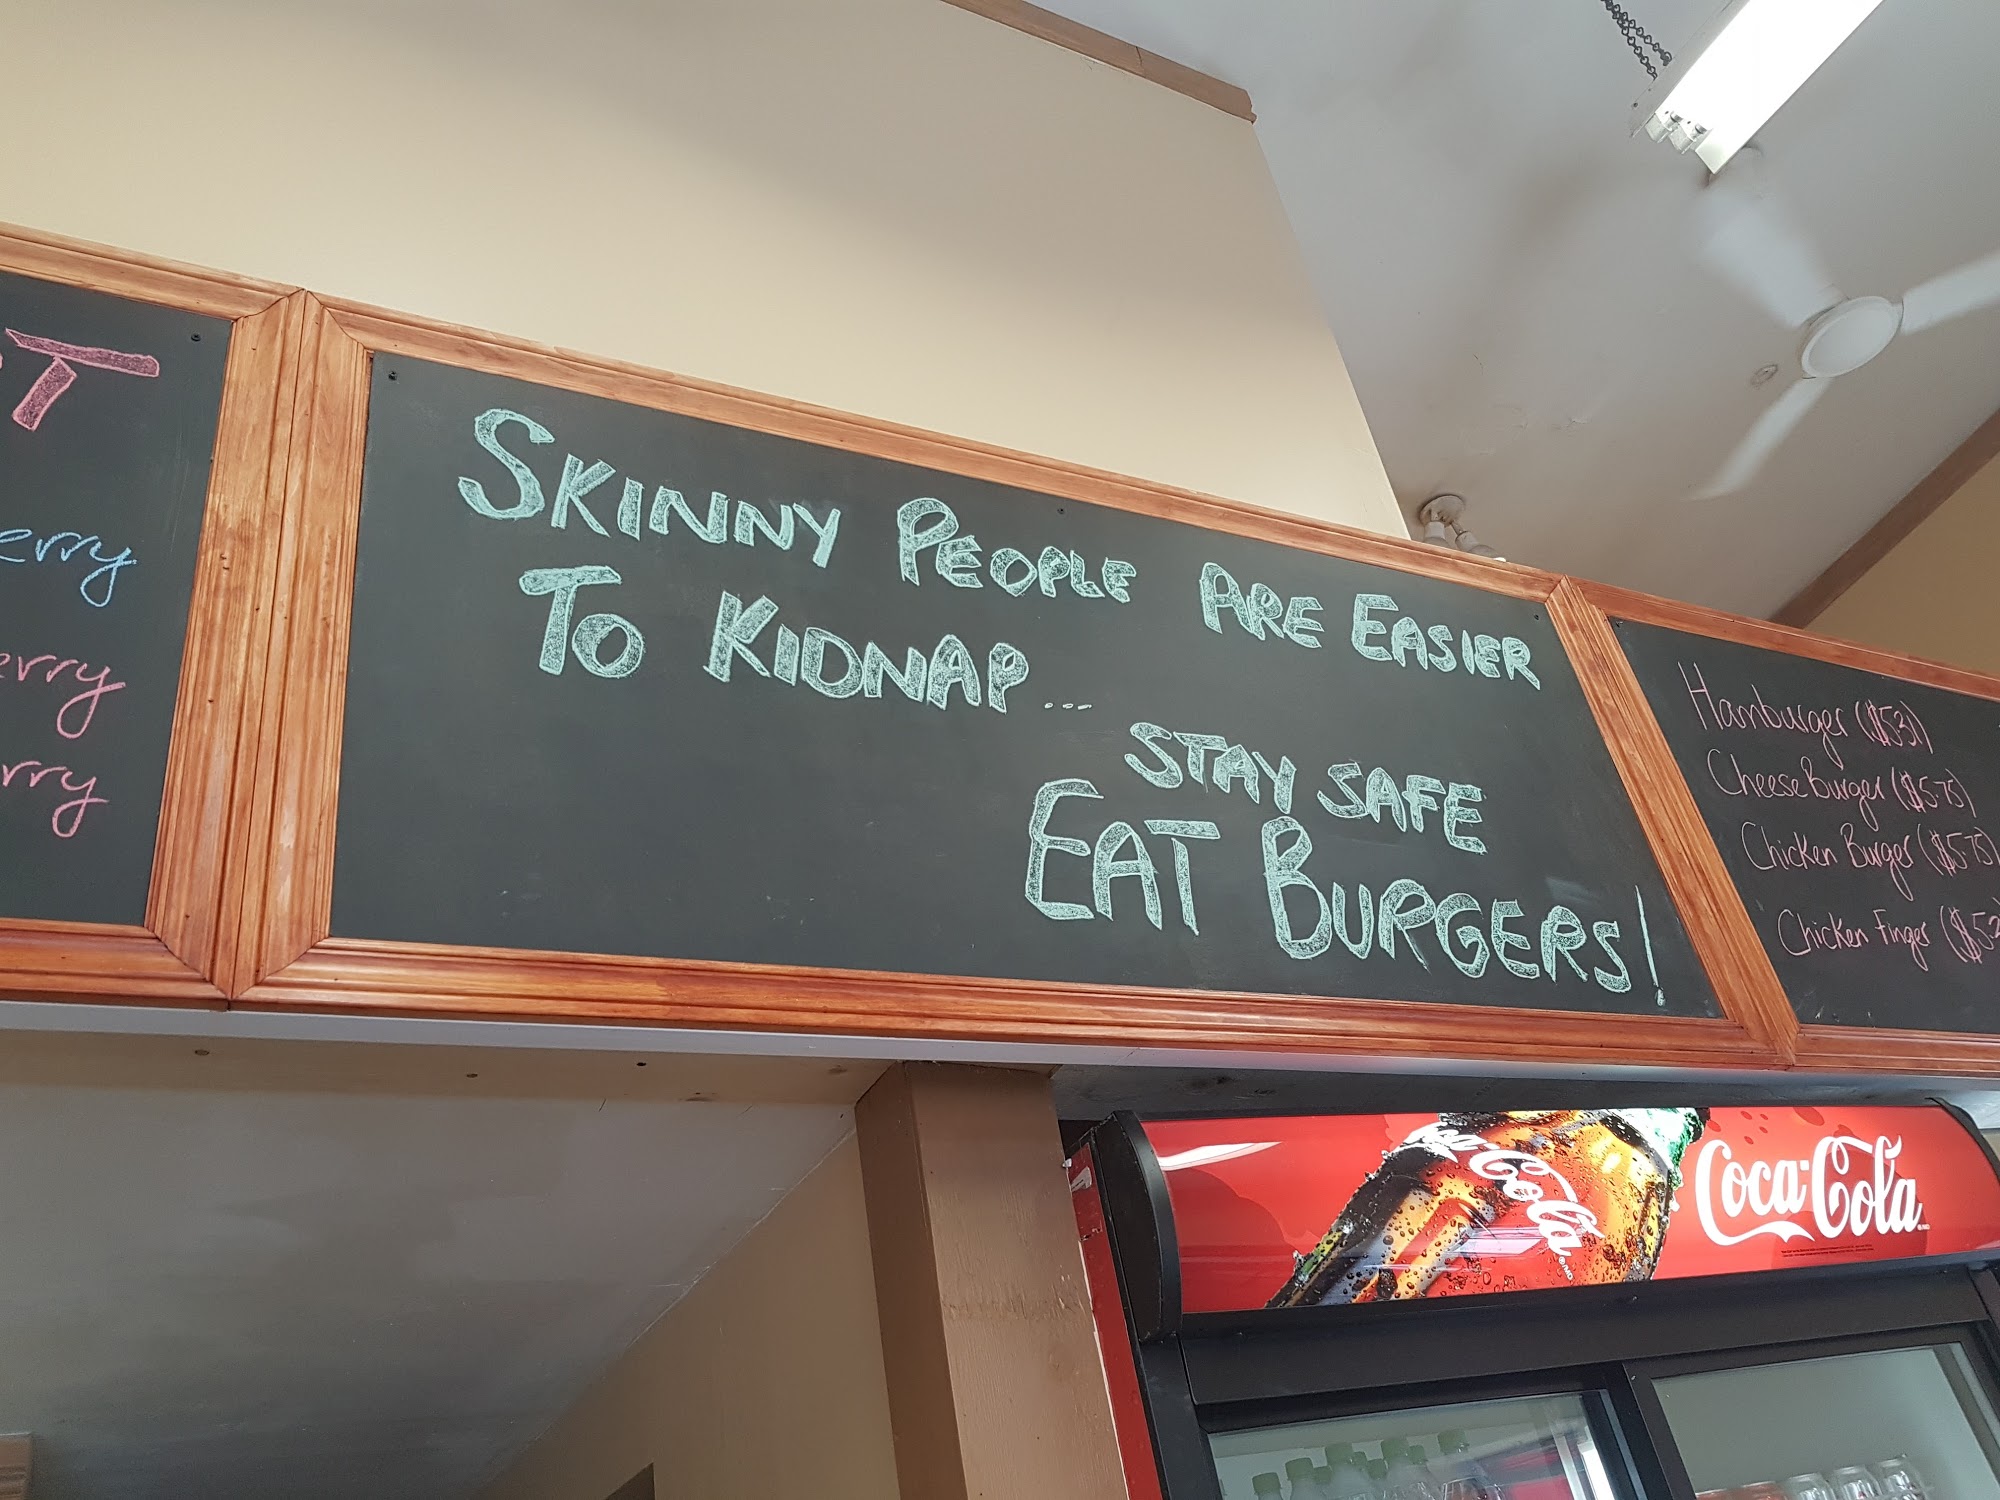 SKINNY PEOPLE ARE EASIER
TO KIDNAP...
STAY SAFE
EAT BURGERS!
T
erry
erry
rry
Hamburger ($5.31)
Cheese Burger ($5.75)
Chicken Burger ($5.75)
Chicken Finger ($5.2
Coca-Cola
Coca-Cola